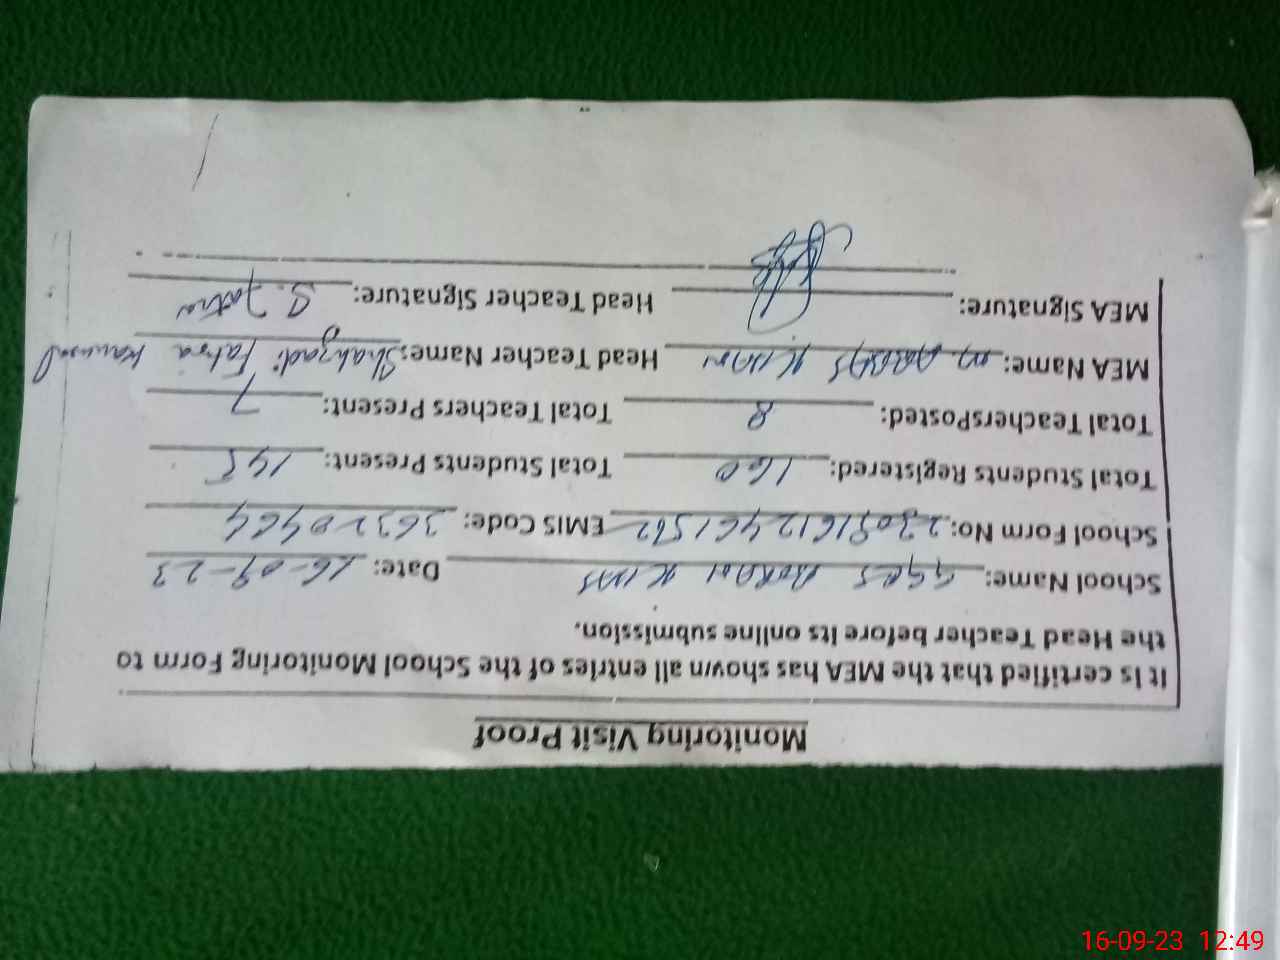 Monitoring Visit Proof
It is certified that the MEA has shown all entries of the School Monitoring Form to
the Head Teacher before its online submission.
School Name: GGES Date: 16-09-23
School Form No: EMIS Code: 36320464
Total Students Registered: 160 Total Students Present: 145
Total TeachersPosted: 8 Total Teachers Present: 7
MEA Name: M. ABBAS KHAN Head Teacher Name: Shahzadi Kausal
MEA Signature: Head Teacher Signature:
16-09-23 12:49